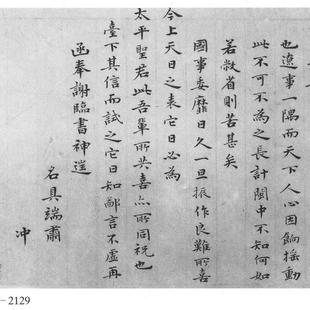 也遼事一隅而天下人心因餉搖動
此不可不為之長計閩中不知何如
若敝省則苦甚矣
國事委靡日久一旦振作良難所喜
今上天日之表它日必為
太平聖君此吾輩所共喜亦所同祝也
臺下其信而試之它日知鄙言不虛再
函奉謝臨書神遑
名具端肅
沖
-2129